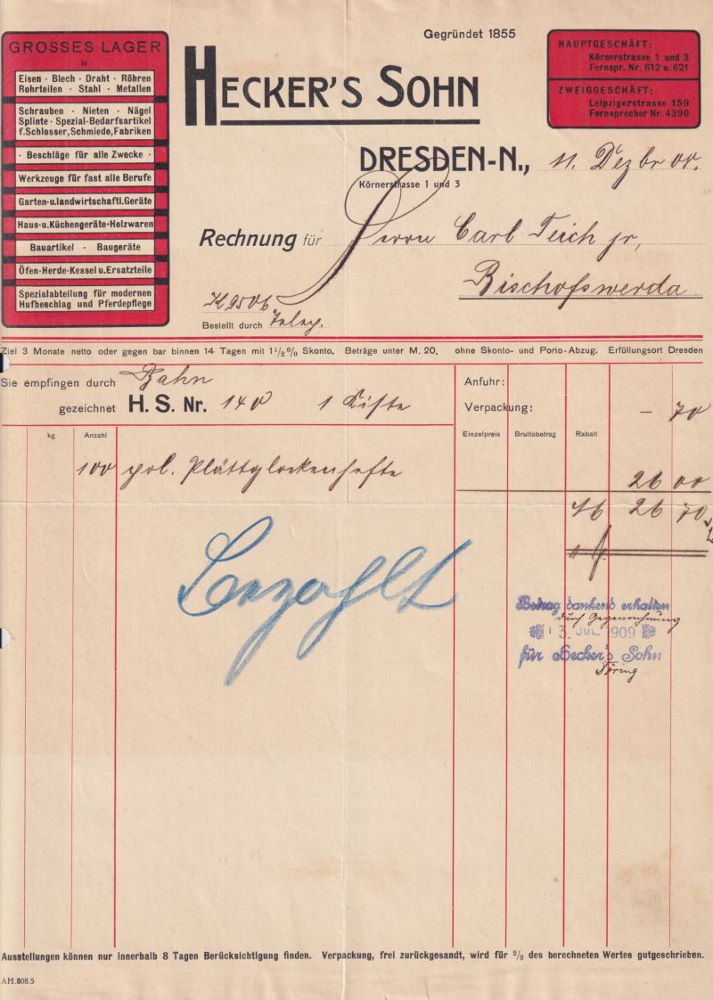 Gegründet 1855
GROSSES LAGER
in
Eisen · Blech · Draht · Röhren
Rohrteilen · Stahl · Metallen
Schrauben · Nieten · Nägel
Splinte · Spezial-Bedarfsartikel
f. Schlosser, Schmiede, Fabriken
· Beschläge für alle Zwecke ·
Werkzeuge für fast alle Berufe
Garten- u. landwirtschaftl. Geräte
Haus- u. Küchengeräte · Holzwaren
Bauartikel · Baugeräte
Öfen-Herde-Kessel u. Ersatzteile
Spezialabteilung für modernen
Hufbeschlag und Pferdepflege
HECKER'S SOHN
HAUPTGESCHÄFT:
Körnerstrasse 1 und 3
Fernspr. Nr. 612 u. 621
ZWEIGGESCHÄFT:
Leipzigerstrasse 159
Fernsprecher Nr. 4390
DRESDEN-N., 11. Dezbr
Körnerstrasse 1 und 3
Rechnung für Herrn Carl Teich jr,
Bischofswerda
K 9506
Bestellt durch
Ziel 3 Monate netto oder gegen bar binnen 14 Tagen mit 1½ % Skonto. Beträge unter M. 20, ohne Skonto- und Porto-Abzug. Erfüllungsort Dresden
Sie empfingen durch Bahn
gezeichnet H. S. Nr. 140 1 Kiste
Anfuhr:
Verpackung: – 70
kg Anzahl Einzelpreis Bruttobetrag Rabatt
100 pol. Plättglockenhefte
26 00
M 26 70
Bezahlt
Betrag dankend erhalten
durch Gegenrechnung
13. JUL. 1909
für Hecker's Sohn
Ausstellungen können nur innerhalb 8 Tagen Berücksichtigung finden. Verpackung, frei zurückgesandt, wird für ⅔ des berechneten Wertes gutgeschrieben.
AH.808.5